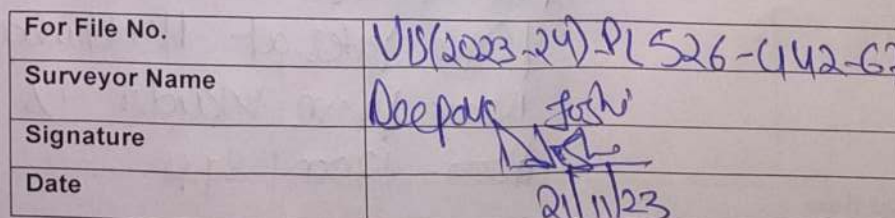 For File No. VIS(2023-24)-PL526-442-6
Surveyor Name Deepak Joshi
Signature
Date 21/11/23